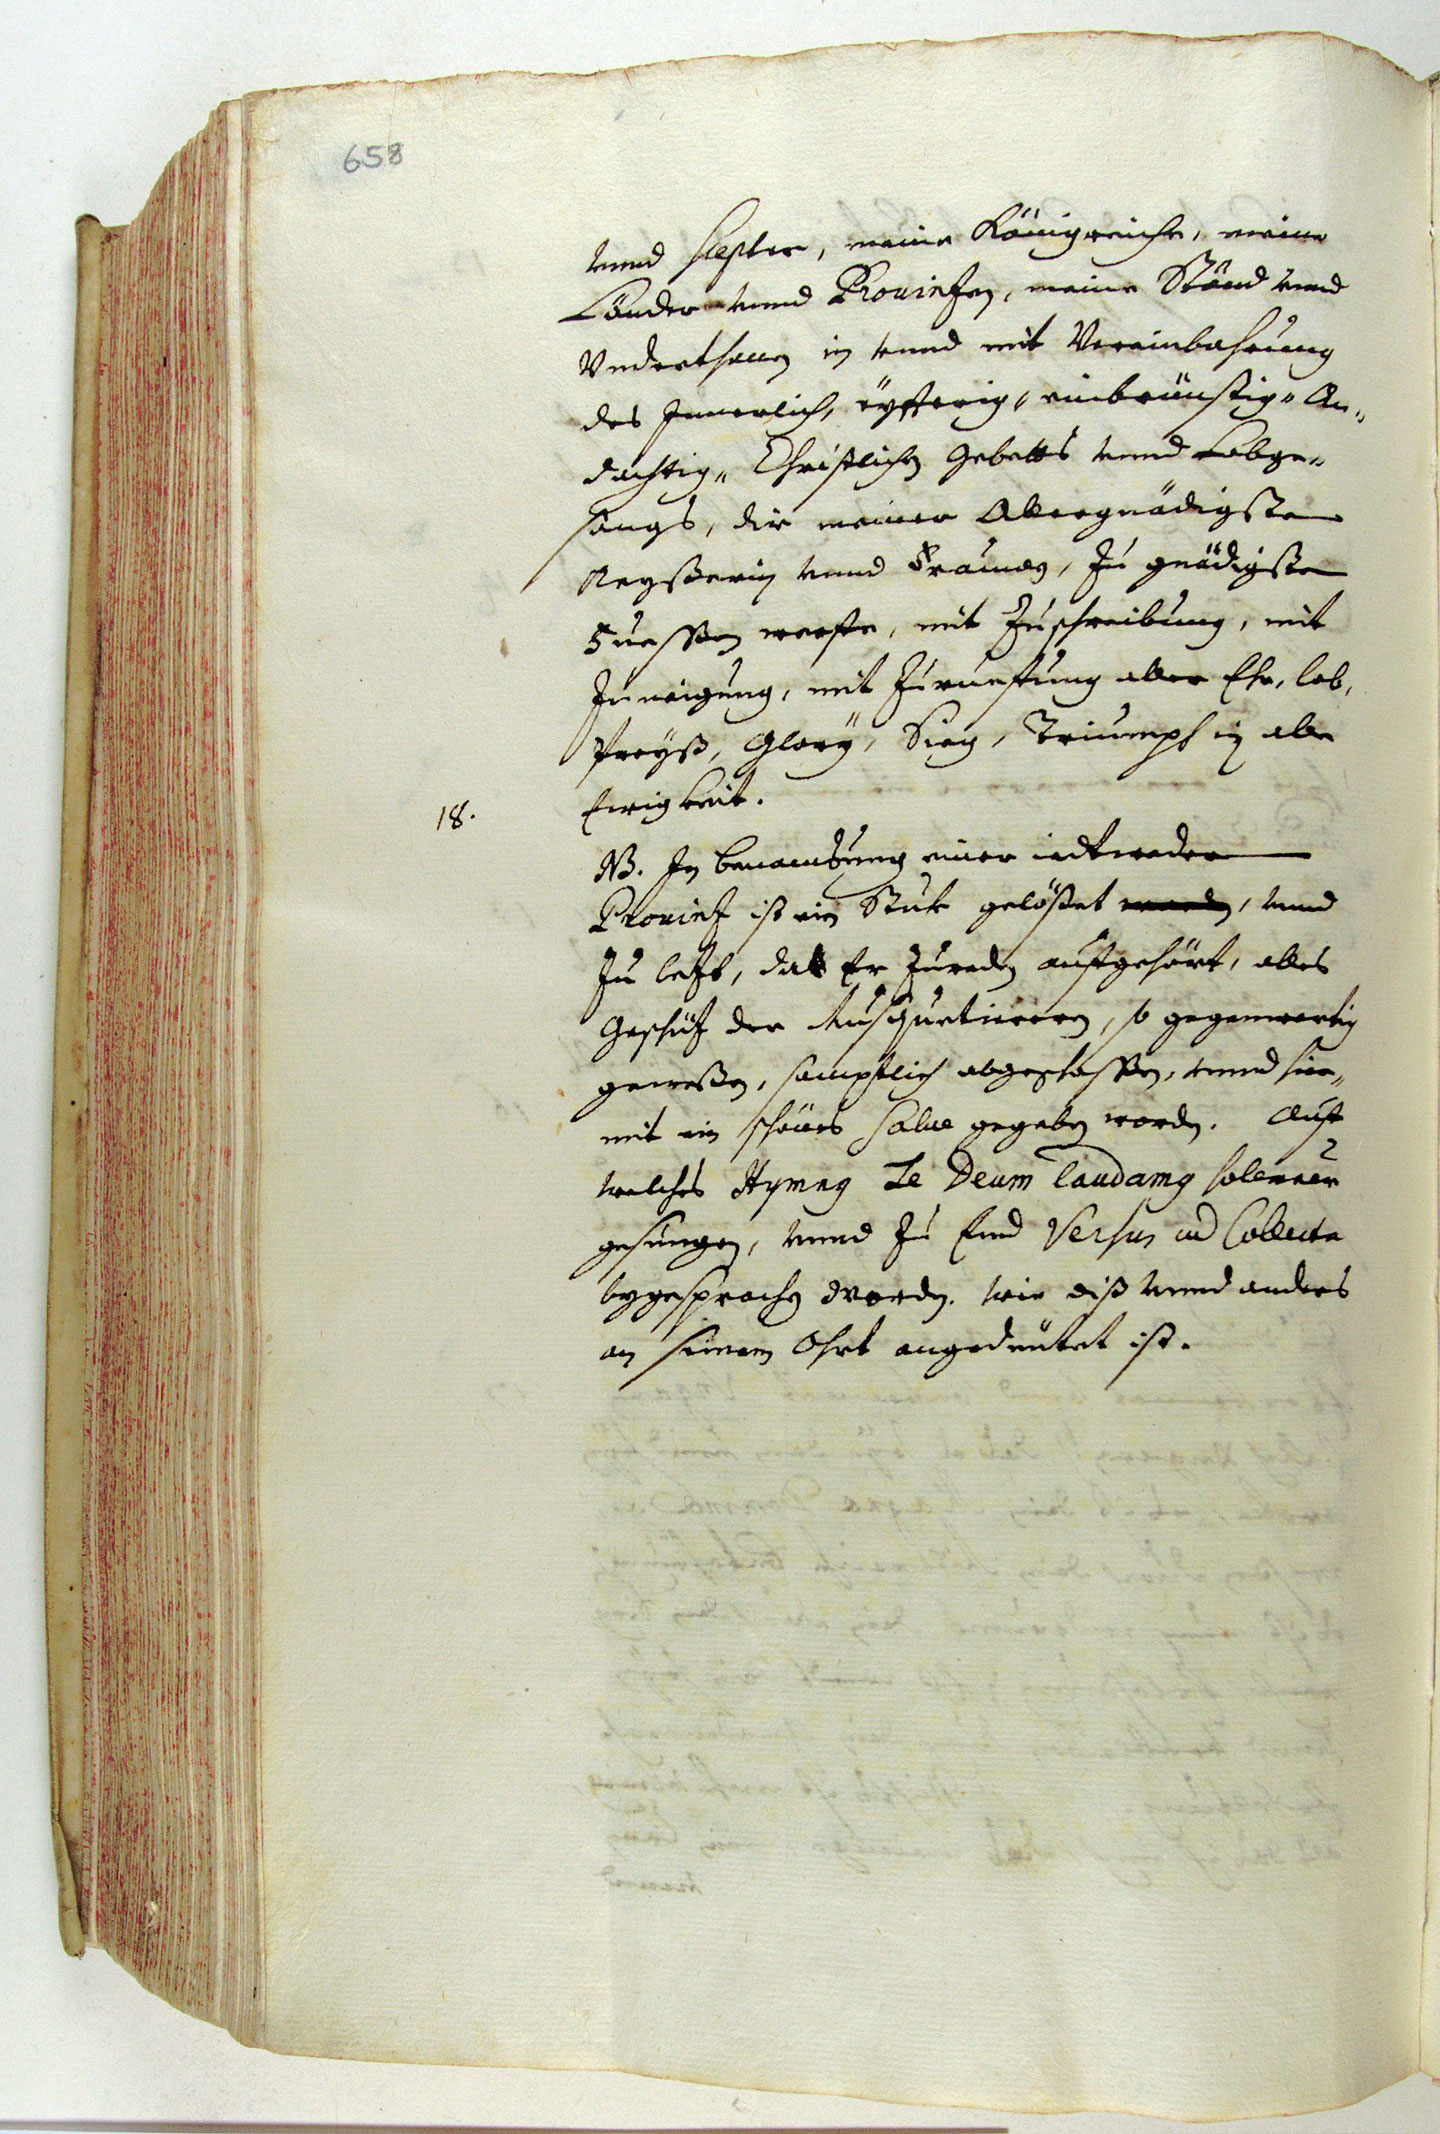 658
vnnd Scepter, meine Königreiche, meine
Länder vnnd Prouintzen, meine Ständ vnnd
Vnderthanen in vnnd mit Vereinbahrung
des Innerlich, eÿfferig, einbrünstig, An-
dächtig, Christlichen Gebetts vnnd Lobge-
sangs, dir meiner Allergnädigsten
Keyßerin vnnd Frauwen, zu gnädigsten
Fuessen werffe, mit Zuschreibung, mit
Zuneigung, mit Zuruessung aller Ehr, lob,
Preyß, Glorÿ, Sieg, Triumph in alle
Ewigkeit.
18.
NB. In benambsung einer iedtweder
Prouintz ist ein Stuk gelößet worden, vnnd
zu letzt, da Er zureden auffgehört, alles
Geschütz der Musquetiereren, so gegenwertig
geweßen, samptlich abgeschossen, vnnd hie-
mit ein schönes Salue gegeben worden. Auff
welches Hymnus Te Deum laudamus solenner
gesungen, vnnd zu End Versus und Collecta
bygesprochen worden. wie diß vnnd anders
an seinem Ohrt angedeutet ist.